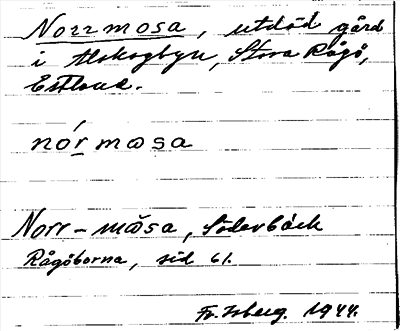 Norrmosa, utdöd gård
i Alskogbyn, Stora Rågö,
Estland.
nórmɷsa
Norr-mōsa, Söderbäck
Rågöborna, sid 61.
Fr. Isberg. 1944.